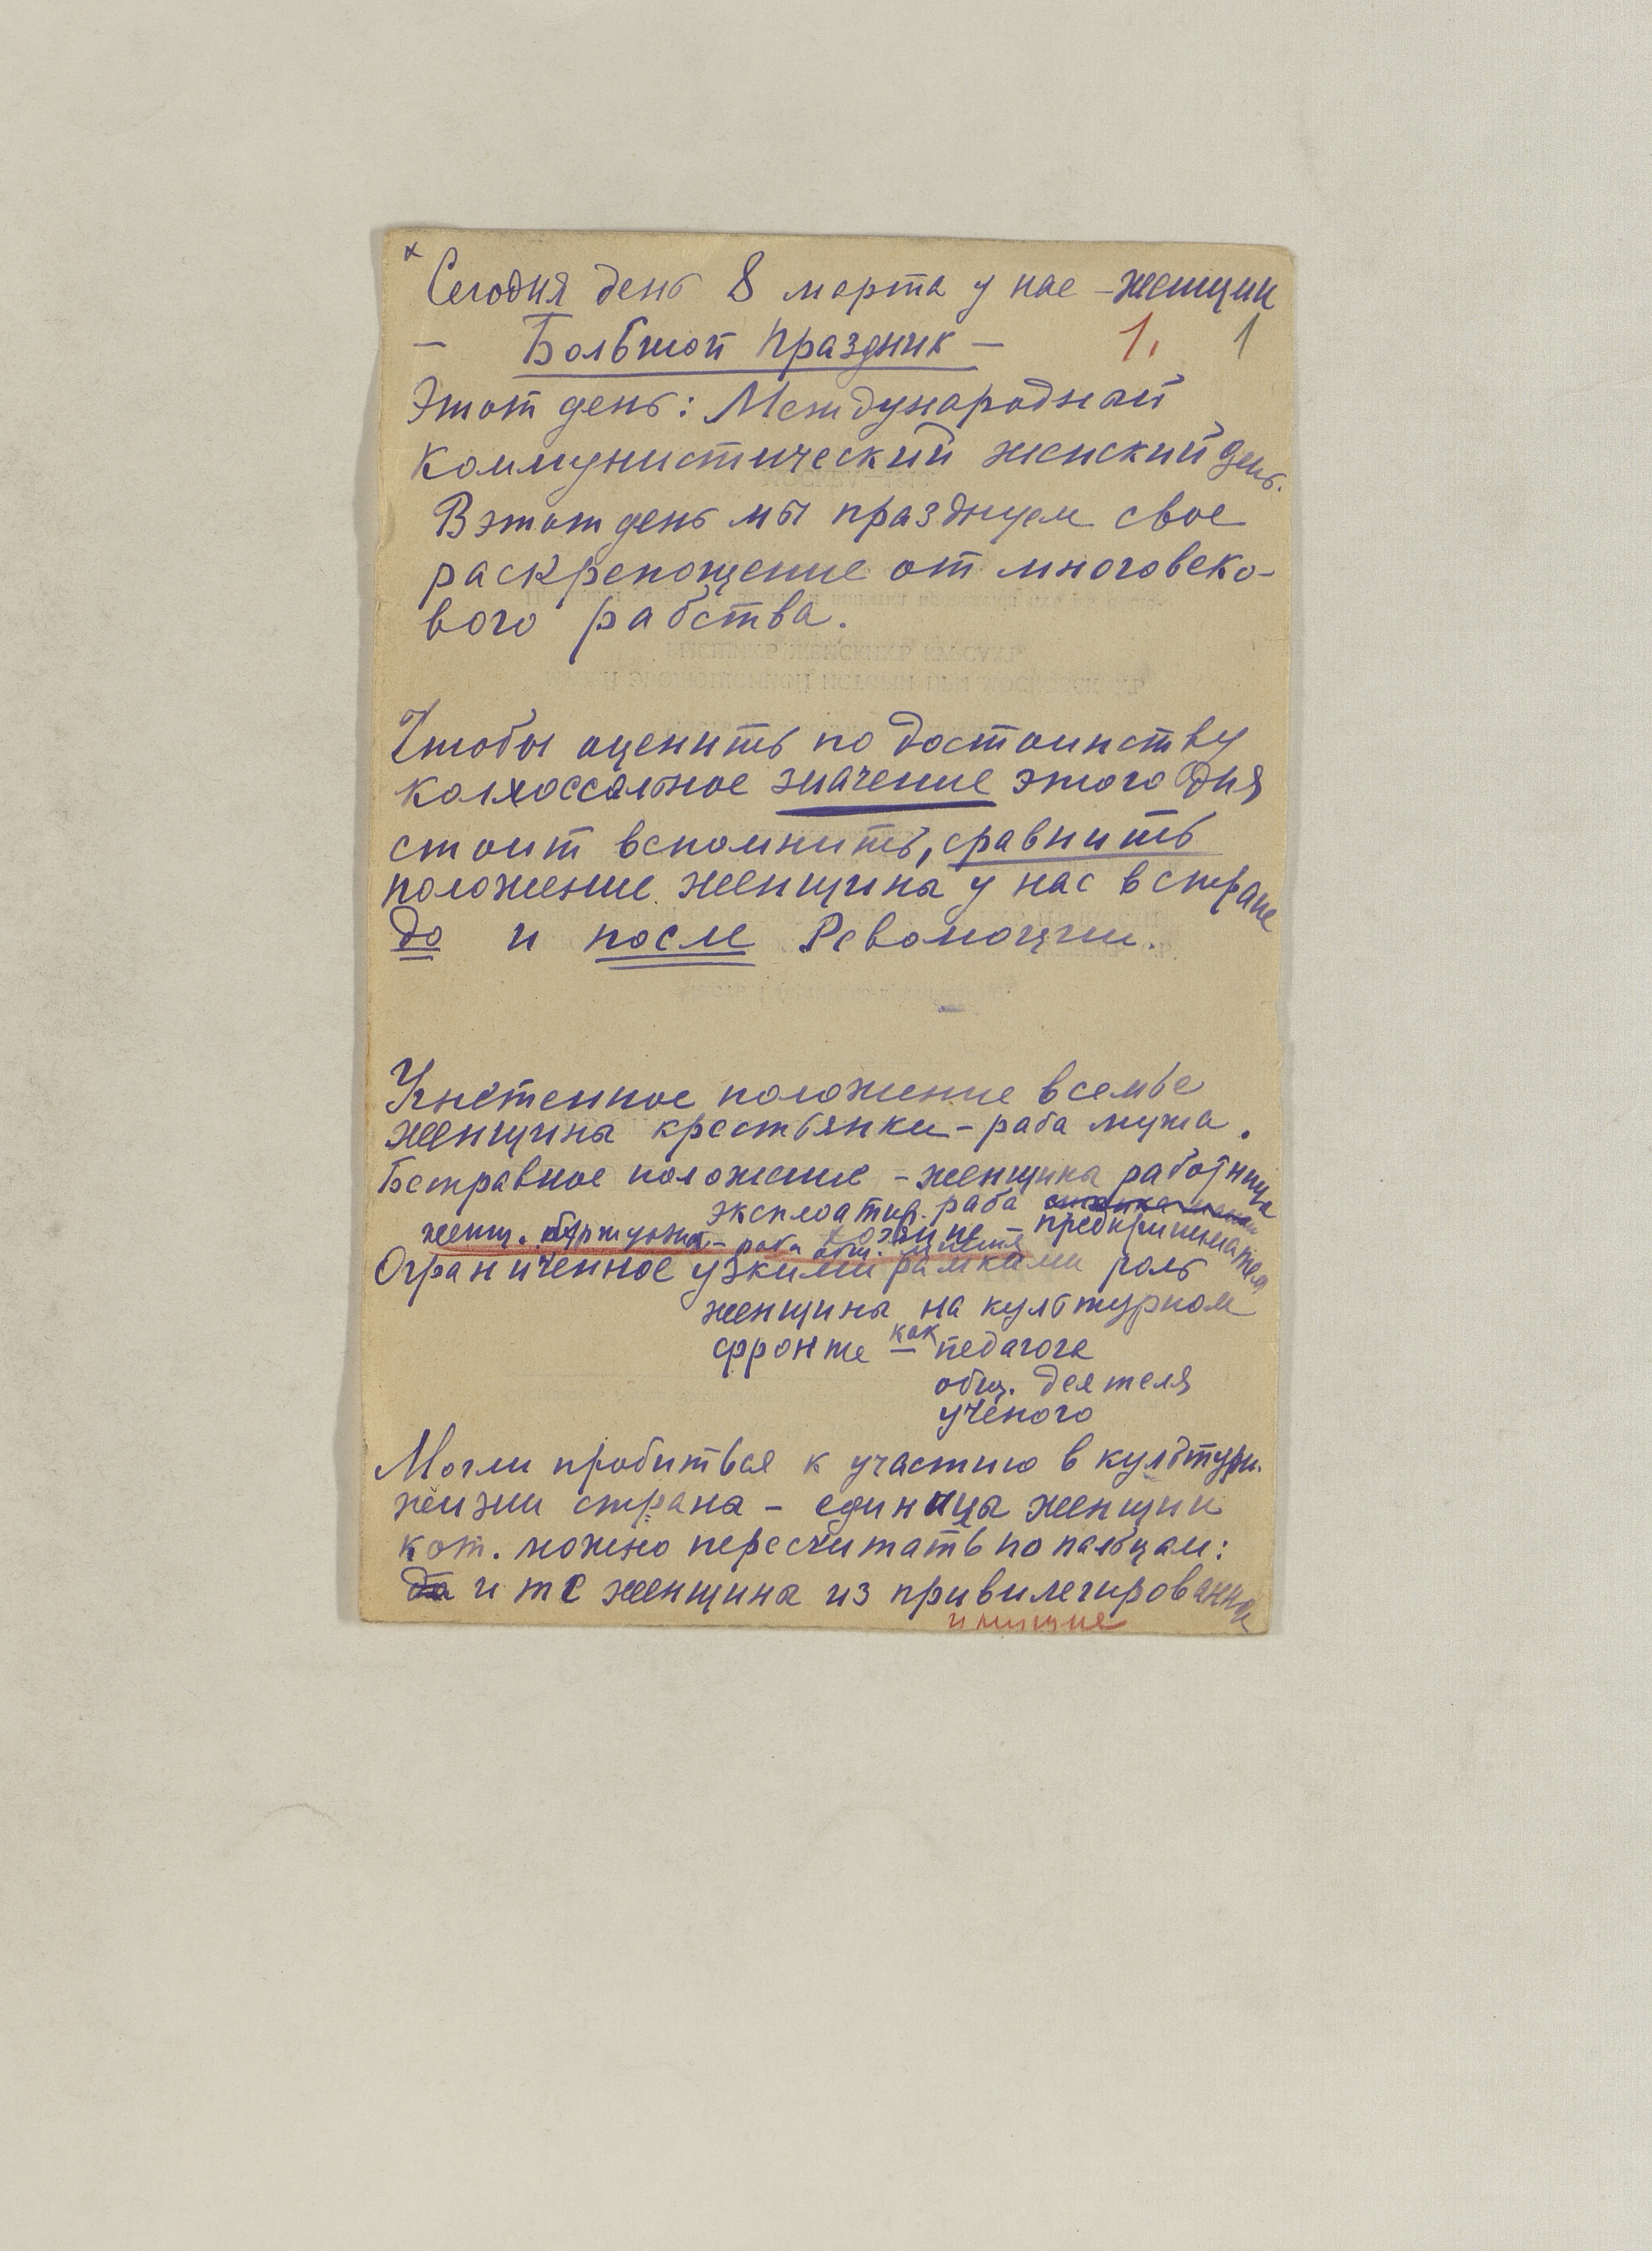 × Сегодня день 8 марта у нас – женщин
– Большой праздник –
1. 1
Этот день: Международный
Коммунистический женский день.
В этот день мы празднуем свое
раскрепощение от многовеко-
вого рабства.
Чтобы оценить по достоинству
колоссальное значение этого дня
стоит вспомнить, сравнить
положение женщины у нас в стране
до и после Революции.
Угнетенное положение в семье
женщины крестьянки – раба мужа.
Бесправное положение – женщины работница
эксплоатир. раба
хозяине – предпринимателя
женщ. буржуазн. – раба общ. мнения
Ограниченное узкими рамками роль
женщины на культурном
фронте – как педагога
общ. деятеля
учёного
Могли пробиться к участию в культурн.
жизни страны – единицы женщин
кот. можно пересчитать по пальцам:
да и те женщины из привилегированных